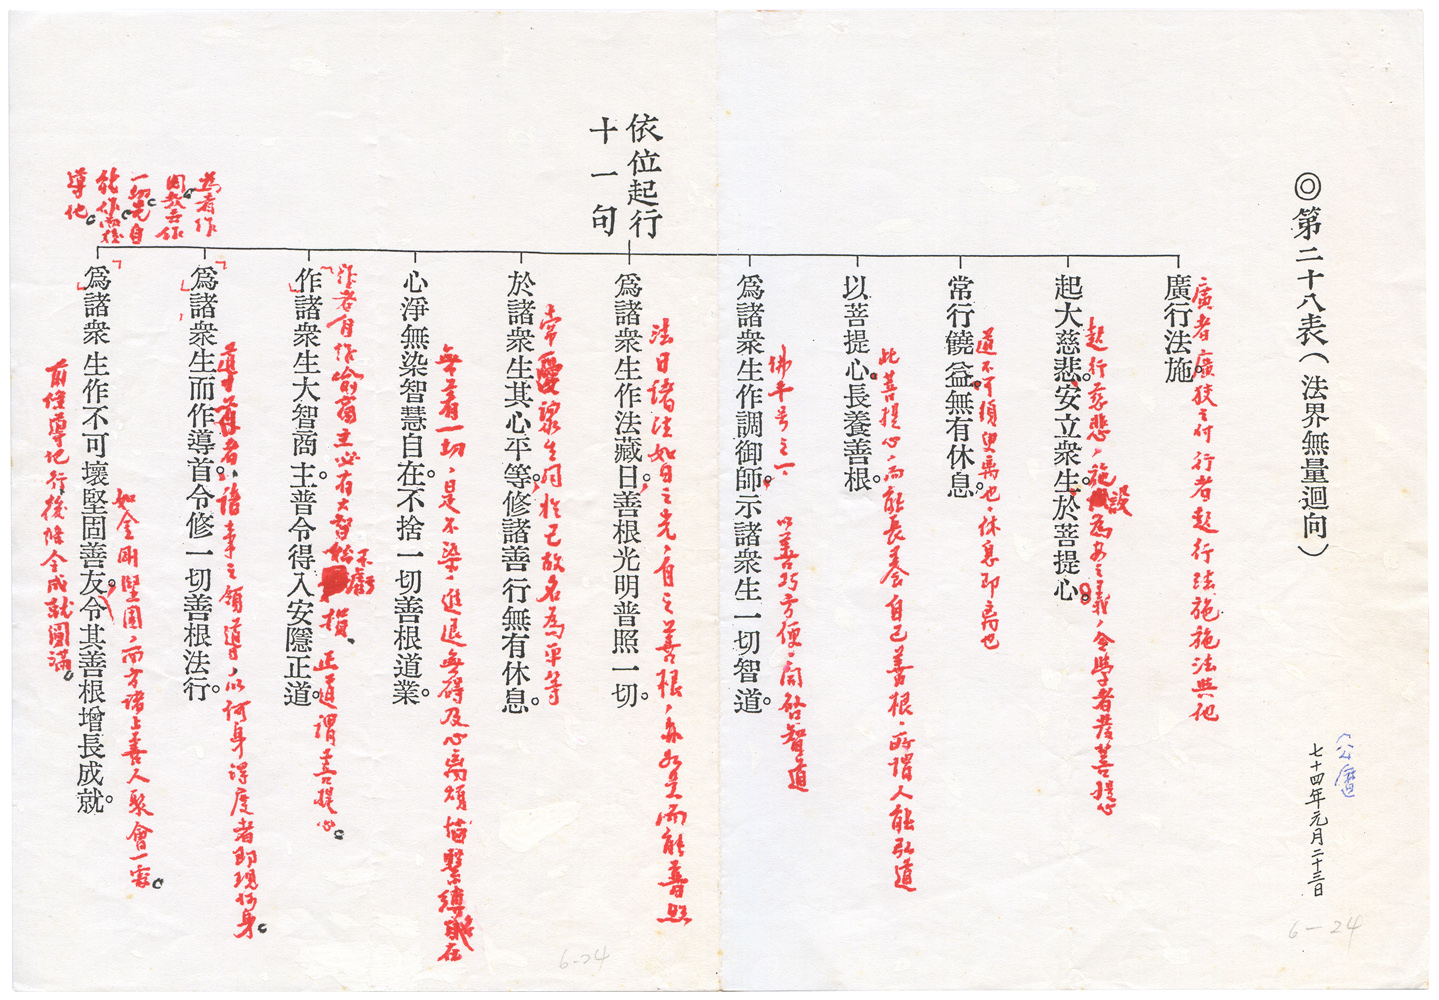 ◎第二十八表（法界無量迴向）
（公曆
七十四年元月二十三日
6-24
依位起行
十一句
廣行法施。
廣者廣狹之付行者起行法施施法與他
起大慈悲。安立衆生。於菩提心。
起行慈悲，施設為安之義，令學者發菩提心
常行饒益。無有休息。
道不可須臾離也，休息即离也
以菩提心。長養善根。
此菩提心，而能長養自己善根，所謂人能弘道
爲諸衆生作調御師。示諸衆生一切智道。
佛十号之一 以善巧方便，開啓智道
爲諸衆生作法藏日。善根光明普照一切。
法日諸法如日之光，自之善根，亦如是而能普照
於諸衆生其心平等。修諸善行無有休息。
常愛眾生同於己故名為平等
心淨無染智慧自在。不捨一切善根道業。
無着一切，是不染，進退無碍及心离煩惱繫縛
作諸衆生大智商主。普令得入安隱正道。
作者自作喻商主必有大智始不虧損、正道謂菩提心。
爲諸衆生而作導首。令修一切善根法行。
導首者，諸事之領導，以何身得度者即現何身。
爲諸衆生作不可壞堅固善友。令其善根增長成就。
如金剛堅固，而方諸上善人聚會一處。
前住導他行後降令成就圓滿。
為者作
因教云作
一切先自
能作而後
導他。
6-24